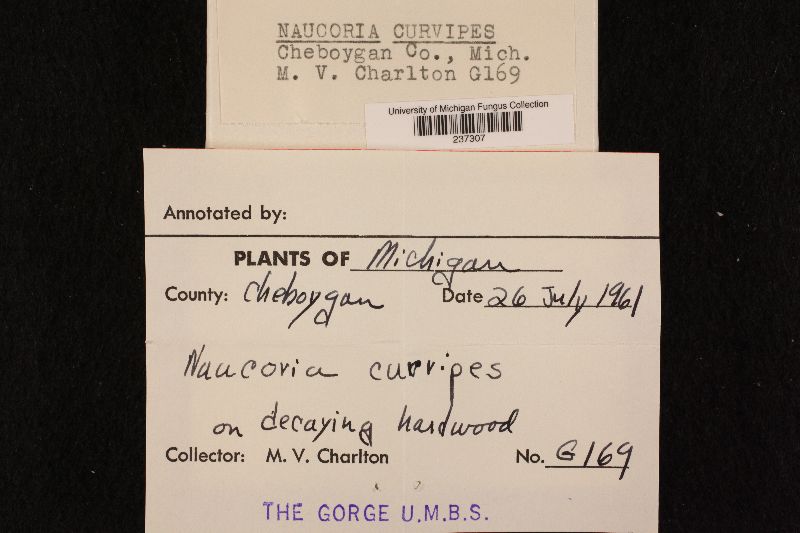 NAUCORIA CURVIPES
Cheboygan Co., Mich.
M. V. Charlton G169
University of Michigan Fungus Collection
237307
Annotated by:
PLANTS OF Michigan
County: Cheboygan Date 26 July 1961
Naucoria curvipes
on decaying hardwood
Collector: M. V. Charlton No. G169
THE GORGE U.M.B.S.